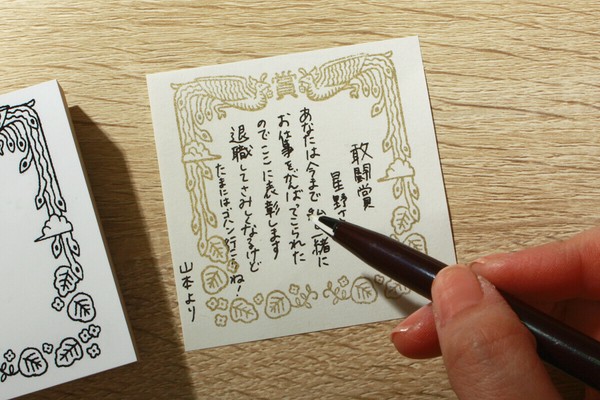 賞
敢闘賞
星野さ
あなたは今まで 一緒に
お仕事をがんばってこられた
のでここに表彰します
退職してさみしくなるけど
たまにはゴハン行こうね!
山本より